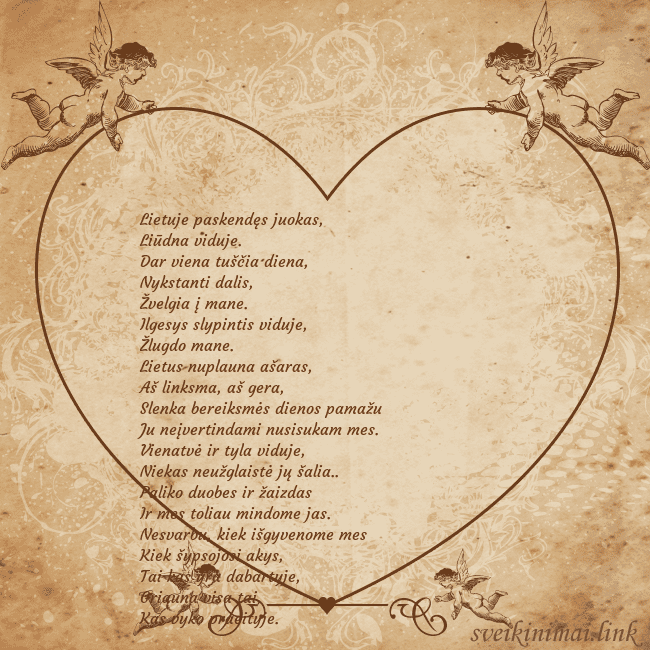 Lietuje paskendęs juokas,
Liūdna viduje.
Dar viena tuščia diena,
Nykstanti dalis,
Žvelgia į mane.
Ilgesys slypintis viduje,
Žlugdo mane.
Lietus nuplauna ašaras,
Aš linksma, aš gera,
Slenka bereiksmės dienos pamažu
Ju neįvertindami nusisukam mes.
Vienatvė ir tyla viduje,
Niekas neužglaistė jų šalia..
Paliko duobes ir žaizdas
Ir mes toliau mindome jas.
Nesvarbu, kiek išgyvenome mes
Kiek šypsojosi akys,
Tai kas yra dabartyje,
Griauna visa tai,
Kas vyko praeityje.
sveikinimai.link